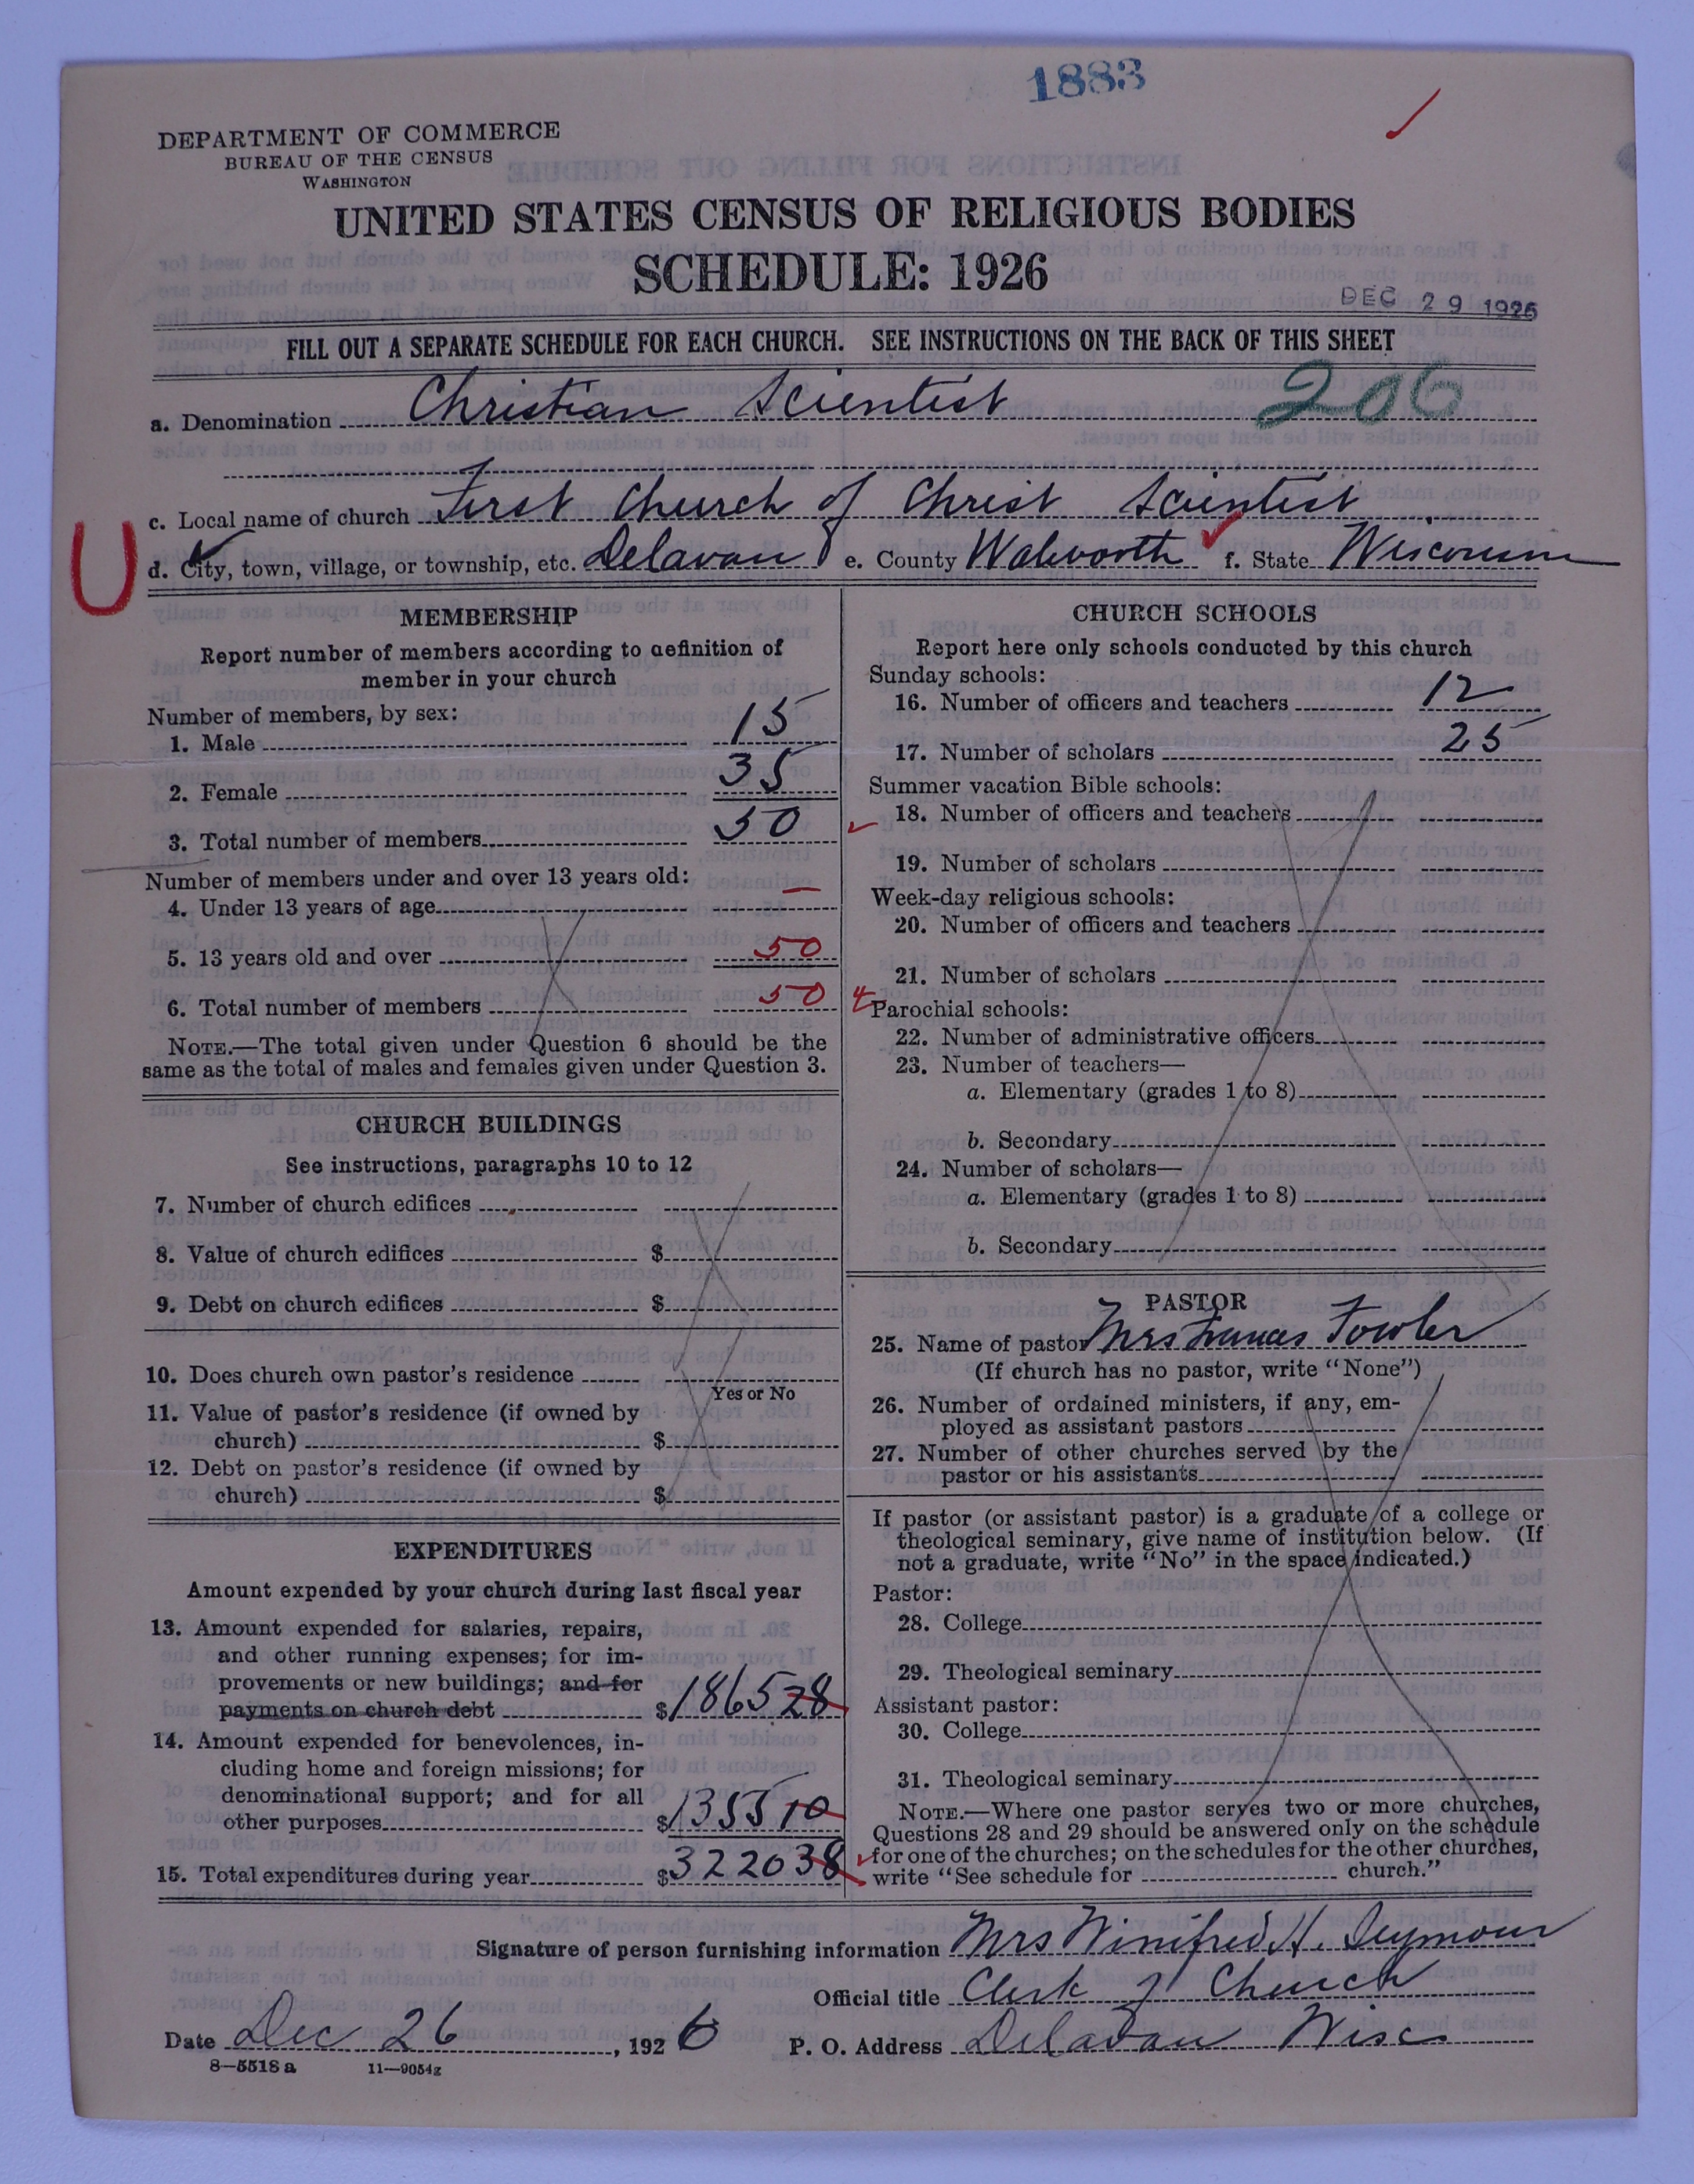 1883
DEPARTMENT OF COMMERCE
BUREAU OF THE CENSUS
WASHINGTON
UNITED STATES CENSUS OF RELIGIOUS BODIES
SCHEDULE: 1926
DEC 29 1926
FILL OUT A SEPARATE SCHEDULE FOR EACH CHURCH. SEE INSTRUCTIONS ON THE BACK OF THIS SHEET
a. Denomination Christian Scientist 206
c. Local name of church First Church of Christ Scientist
U
d. City, town, village, or township, etc. Delavan e. County Walworth f. State Wisconsin
MEMBERSHIP
Report number of members according to definition of
member in your church
Number of members, by sex:
1. Male 15
2. Female 35
3. Total number of members 50
Number of members under and over 13 years old:
4. Under 13 years of age —
5. 13 years old and over 50
6. Total number of members 50
NOTE.—The total given under Question 6 should be the
same as the total of males and females given under Question 3.
CHURCH BUILDINGS
See instructions, paragraphs 10 to 12
7. Number of church edifices
8. Value of church edifices $
9. Debt on church edifices $
10. Does church own pastor's residence
Yes or No
11. Value of pastor's residence (if owned by
church) $
12. Debt on pastor's residence (if owned by
church) $
EXPENDITURES
Amount expended by your church during last fiscal year
13. Amount expended for salaries, repairs,
and other running expenses; for im-
provements or new buildings; and for
payments on church debt $1865 28
14. Amount expended for benevolences, in-
cluding home and foreign missions; for
denominational support; and for all
other purposes $1355 10
15. Total expenditures during year $3220 38
CHURCH SCHOOLS
Report here only schools conducted by this church
Sunday schools:
16. Number of officers and teachers 12
17. Number of scholars 25
Summer vacation Bible schools:
18. Number of officers and teachers
19. Number of scholars
Week-day religious schools:
20. Number of officers and teachers
21. Number of scholars
Parochial schools:
22. Number of administrative officers
23. Number of teachers—
a. Elementary (grades 1 to 8)
b. Secondary
24. Number of scholars—
a. Elementary (grades 1 to 8)
b. Secondary
PASTOR
25. Name of pastor Mrs Frances Fowler
(If church has no pastor, write "None")
26. Number of ordained ministers, if any, em-
ployed as assistant pastors
27. Number of other churches served by the
pastor or his assistants
If pastor (or assistant pastor) is a graduate of a college or
theological seminary, give name of institution below. (If
not a graduate, write "No" in the space indicated.)
Pastor:
28. College
29. Theological seminary
Assistant pastor:
30. College
31. Theological seminary
NOTE.—Where one pastor serves two or more churches,
Questions 28 and 29 should be answered only on the schedule
for one of the churches; on the schedules for the other churches,
write "See schedule for church."
Signature of person furnishing information Mrs Winifred H. Seymour
Official title Clerk of Church
Date Dec 26, 1926 P. O. Address Delavan Wisc
8—5518 a 11—9054z